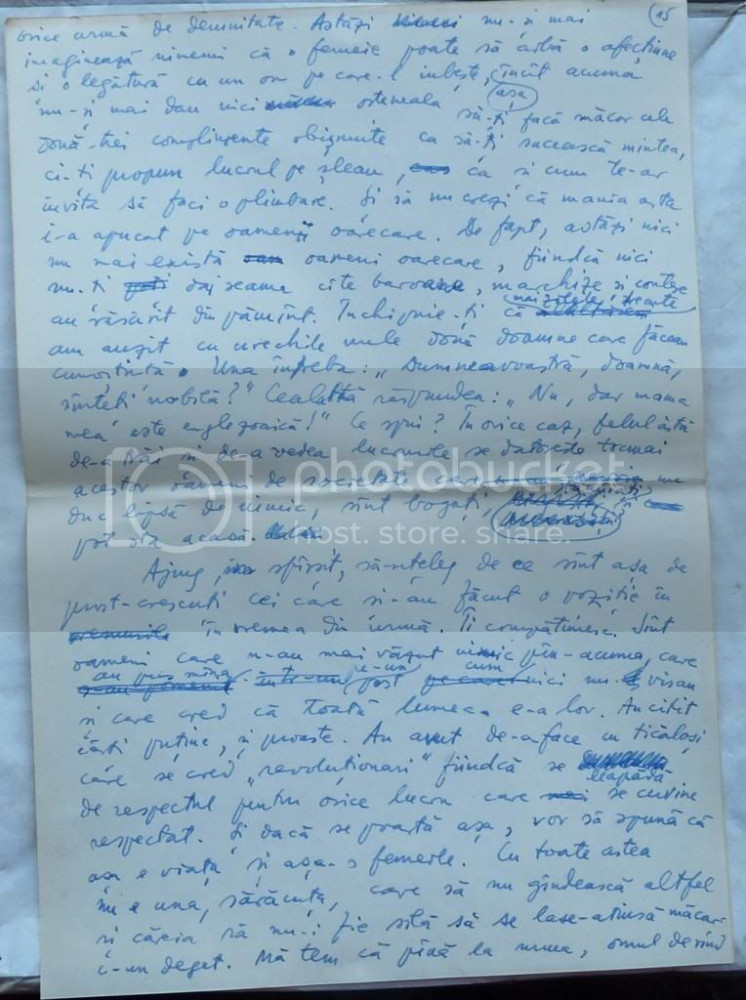 15
orice urmă de demnitate. Astăzi nu-și mai
imaginează nimeni că o femeie poate să aibă o afecțiune
și o legătură cu un om pe care-l iubește, încît acuma
nu-și mai dau nici osteneala așa să-ți facă măcar cele
două-trei complimente obișnuite ca să-ți sucească mintea,
ci-ți propun lucrul pe șleau, ca și cum te-ar
invita să faci o plimbare. Și să nu crezi că mania asta
i-a apucat pe oameni oarecare. De fapt, astăzi nici
nu mai există oameni oarecare, fiindcă nici
nu-ți dai seama cîte baroane, marchize și contese
au răsărit din pămînt. Închipuie-ți că mai zilele trecute
am auzit cu urechile mele două doamne care făceau
cunoștință. Una întreba: „Dumneavoastră, doamnă,
sînteți nobilă?" Cealaltă răspundea: „Nu, dar mama
mea este englezoaică!" Ce spui? În orice caz, felul ăsta
de-a trăi și de-a vedea lucrurile se datorește tocmai
acestor oameni de societate care nu
duc lipsă de nimic, sînt bogați, și nu
pot sta acasă.
Ajung, în sfîrșit, să-nțeleg de ce sînt așa de
prost-crescuți cei care și-au făcut o poziție în
în vremea din urmă. Îi compătimesc. Sînt
oameni care n-au mai văzut nimic pîn-acuma, care
au pus mîna pe-un post cum nici nu visau
și care cred că toată lumea e-a lor. Au citit
cărți puține, și proaste. Au avut de-a face cu ticăloși
care se cred „revoluționari" fiindcă se leapădă
de respectul pentru orice lucru care se cuvine
respectat. Și dacă se poartă așa, vor să spună că
așa e viața și așa-s femeile. Cu toate astea
nu e una, sărăcuța, care să nu gîndească altfel
și căreia să nu-i fie silă să se lase-atinsă măcar
c-un deget. Mă tem că pînă la urmă, omul de rînd
photobucket
host. store. share.